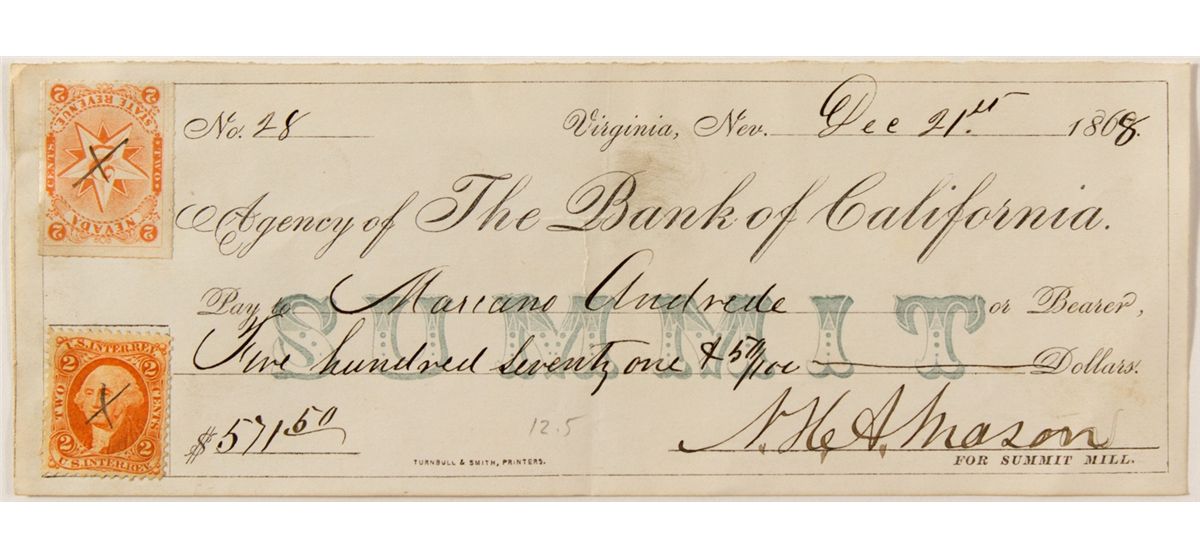 2 STATE REVENUE 2
CENTS. TWO
2 NEVADA 2
No. 28 Virginia, Nev. Dec 21st 1868.
Agency of The Bank of California.
Pay to Mariano Andrede or Bearer,
SUMMIT
Five hundred seventy one & 50/100 Dollars.
$571.50
12.5
N. H. A. Mason
FOR SUMMIT MILL.
TURNBULL & SMITH, PRINTERS.
U.S. INTER. REV.
2 TWO CENTS 2
U.S. INTER. REV.